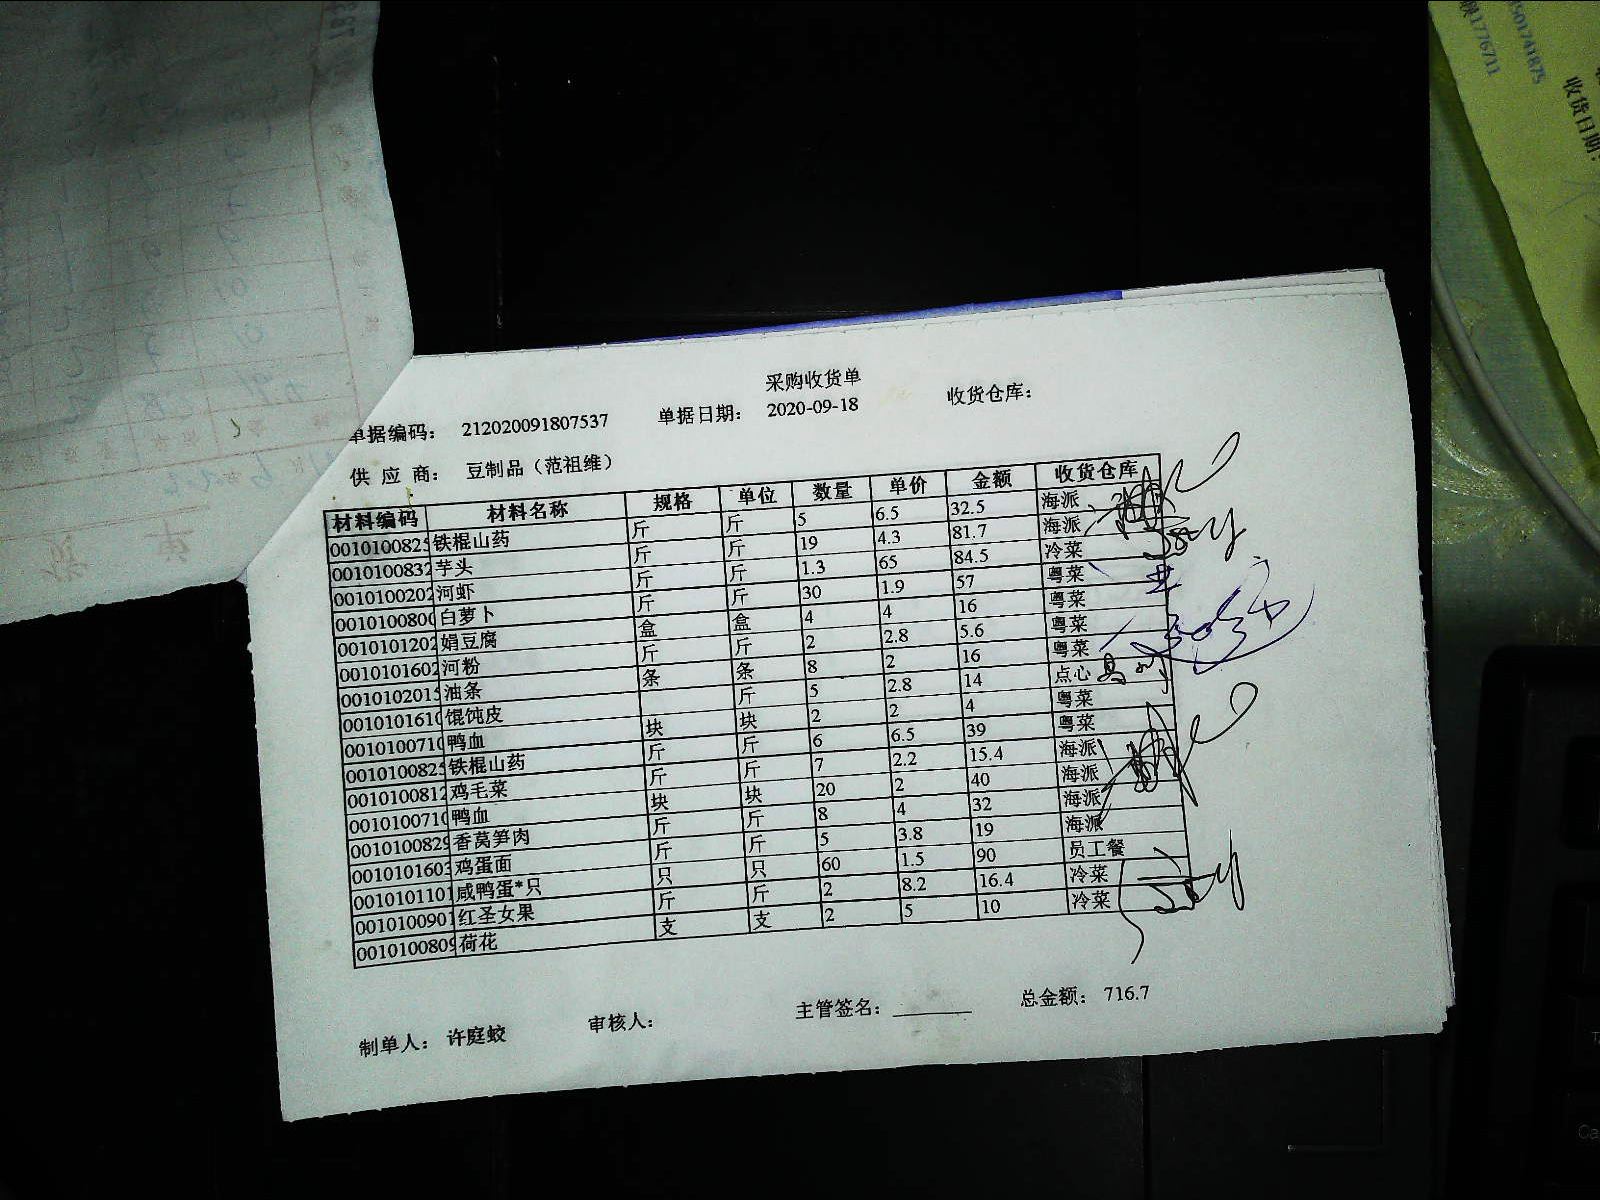 501741875
1776711
收货日期:
采购收货单
单据编码: 212020091807537 单据日期: 2020-09-18 收货仓库:
供 应 商: 豆制品（范祖维）
材料编码 材料名称 规格 单位 数量 单价 金额 收货仓库
0010100825 铁棍山药 斤 斤 5 6.5 32.5 海派
0010100832 芋头 斤 斤 19 4.3 81.7 海派
0010100202 河虾 斤 斤 1.3 65 84.5 冷菜
0010100800 白萝卜 斤 斤 30 1.9 57 粤菜
0010101202 娟豆腐 盒 盒 4 4 16 粤菜
0010101602 河粉 斤 斤 2 2.8 5.6 粤菜
0010102015 油条 条 条 8 2 16 粤菜
0010101610 馄饨皮 斤 5 2.8 14 点心
0010100710 鸭血 块 块 2 2 4 粤菜
0010100825 铁棍山药 斤 斤 6 6.5 39 粤菜
0010100812 鸡毛菜 斤 斤 7 2.2 15.4 海派
0010100710 鸭血 块 块 20 2 40 海派
0010100829 香莴笋肉 斤 斤 8 4 32 海派
0010101603 鸡蛋面 斤 斤 5 3.8 19 海派
0010101101 咸鸭蛋*只 只 只 60 1.5 90 员工餐
0010100901 红圣女果 斤 斤 2 8.2 16.4 冷菜
0010100809 荷花 支 支 2 5 10 冷菜
制单人: 许庭蛟 审核人: 主管签名: 总金额: 716.7